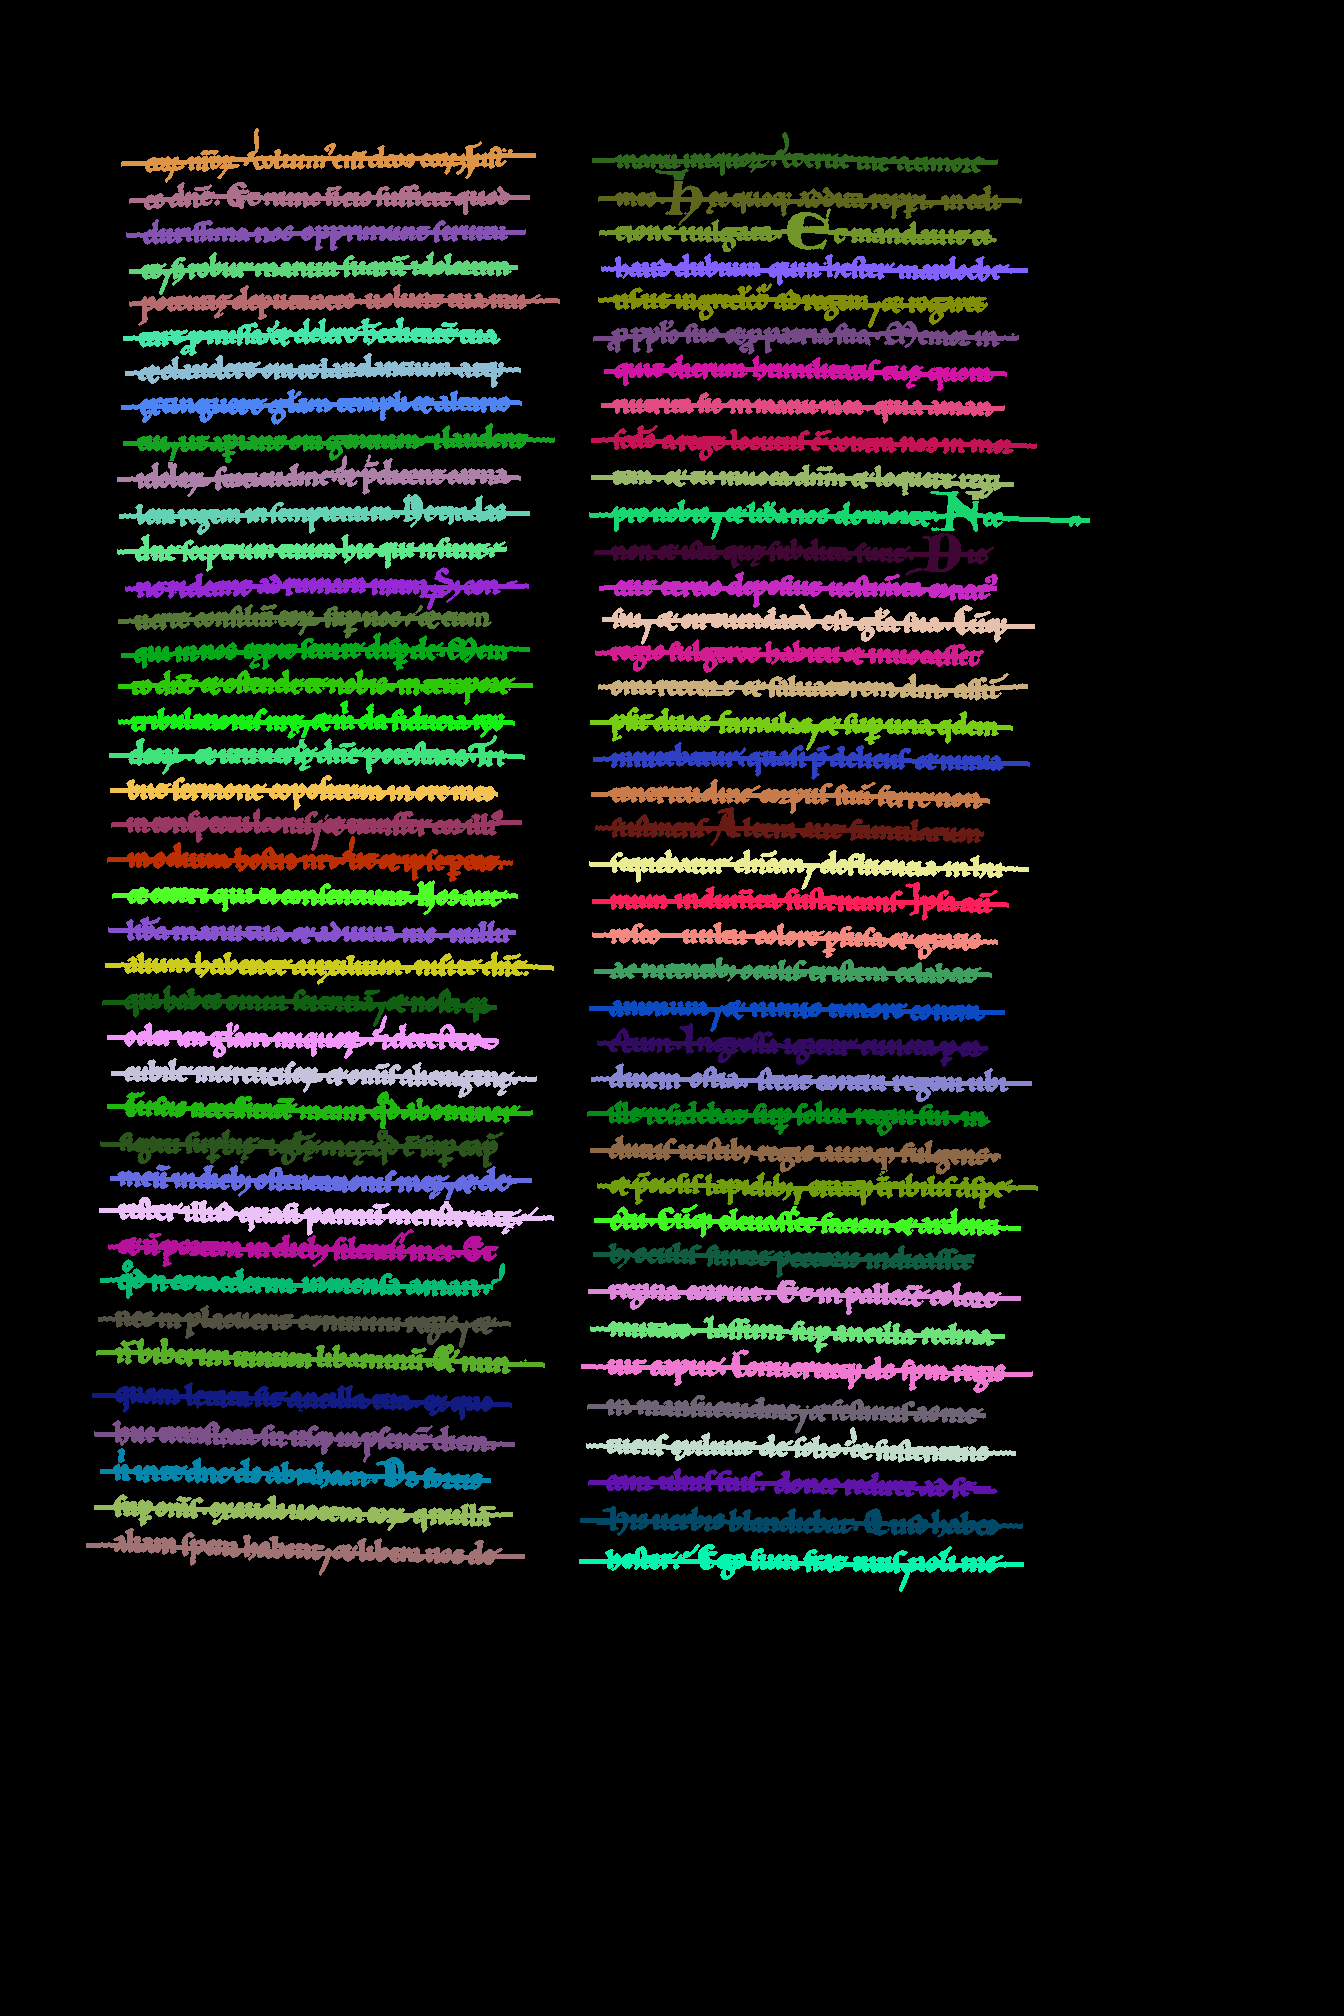 eoꝝ nr̄oꝝ. Coluim᷒ eni deos eoꝝ. iust᷒
es dn̄e. Et nunc n̄ eis sufficit quod
durissima nos opprimunt seruitu
te, s; robur manuum suaruȝ idolorum
potentie deputantes uolunt tua mu
tare promissa ⁊ delere hereditatē tua
et claudere ora laudantium atq;
extinguere glām templi ⁊ altaris
tui, ut aperiant ora gentium ⁊ laudent
idoloꝝ fortitudinē ⁊ p̄dicent carna
lem regem in sempiternum. Ne tradas
dn̄e sceptrum tuum his qui n̄ sunt
ne rideant ad ruinam nr̄am, s; con
uerte consiliū eoꝝ sup eos, ⁊ eum
qui in nos cepit seuire disp̄de. Mem̄
to dn̄e ⁊ ostende te nobis in tempore
tribulationis nr̄e, ⁊ m̄ da fiducia rex
deoꝝ ⁊ uniuerse dn̄e potestatis. Tri
bue sermonem compositum in ore meo
in conspectu leonis, ⁊ transfer cor illi᷒
in odium hostis nr̄i ut ⁊ ipse pereat
et ceteri qui ei consentiunt. Nos aut̄
libera manu tua ⁊ adiuua me nullū
aliud habentē auxilium nisi te dn̄e
qui habes omniū scientiā, ⁊ nosti q;
oderim glām iniquoꝝ, ⁊ detester
cubile incircumcisoꝝ ⁊ om̄is alienigene
Tu scis necessitatē meam qd̄ abominer
signū supbie ⁊ glē mee qd̄ ē sup caput
meū in dieb; ostentationis mee, ⁊ de
tester illud quasi pannū menstruate
⁊ n̄ portem in dieb; silentii mei. Et
qd̄ n̄ comederim in mensa aman
nec m̄ placuerit conuiuium regis, ⁊
n̄ biberim uinum libaminū. Et nun
quam letata sit ancilla tua ex quo
huc translata sū usq; in p̄sentē diem
n̄ in te dn̄e ds̄ abraham. Ds̄ fortis
sup om̄s exaudi uocem eoꝝ qui nullā
aliam spem habent, ⁊ libera nos de
manu iniquoꝝ, ⁊ erue me a timore
meo. Hec quoq; addita repperi in edi
cione uulgata. Et mandauit ei
haud dubium quin hester mardoche᷒
ut ingrederet᷒ ad regem, ⁊ rogaret
p pplo suo ⁊ p patria sua. Memor in
quit dierum humilitatis tue quom̄
nutrita sis in manu mea quia aman
scd̄s a rege locutus ē contra nos in mor
tem ⁊ tu inuoca dn̄m ⁊ loquere regi
pro nobis, ⁊ libera nos de morte. Nec
non ⁊ ista que subdita sunt. Die
aut̄ tertio deposuit uestim̄ta ornat᷒
sui, ⁊ circumdata est glā sua. Cūq;
regio fulgeret habitu ⁊ inuocasset
omnium rectorē ⁊ saluatorem dm̄ assū
psit duas famulas, ⁊ sup una qdem
innitebatur quasi p̄ deliciis ⁊ nimia
teneritudine corpus suū ferre non
sustinens. Altera aut̄ famularum
sequebatur dn̄am, defluentia in hu
mum indum̄ta sustentans. Ipsa aut̄
roseo uultu colore pfusa ⁊ gratis
ac nitentib; oculis tristem celabat
animum, ⁊ nimio timore contrac
tum. Ingressa igitur cuncta per or
dinem ostia stetit contra regem ubi
ille residebat sup solium regni sui in
dutus uestib; regiis auroq; fulgens
⁊ p̄tiosis lapidib;, eratq; terribilis aspec
tu. Cūq; eleuasset faciem ⁊ arden
tib; oculis furore pectoris indicasset
regina corruit. Et in pallorē colore
mutato lassum sup ancilla reclina
uit caput. Conuertitq; ds̄ spm regis
in mansuetudinē, ⁊ festinus ac me
tuens exiliuit de solio, ⁊ sustentans
eam ulnis suis donec rediret ad se
his uerbis blandiebat᷒. Quid habes
hester? Ego sum frater tuus, noli me